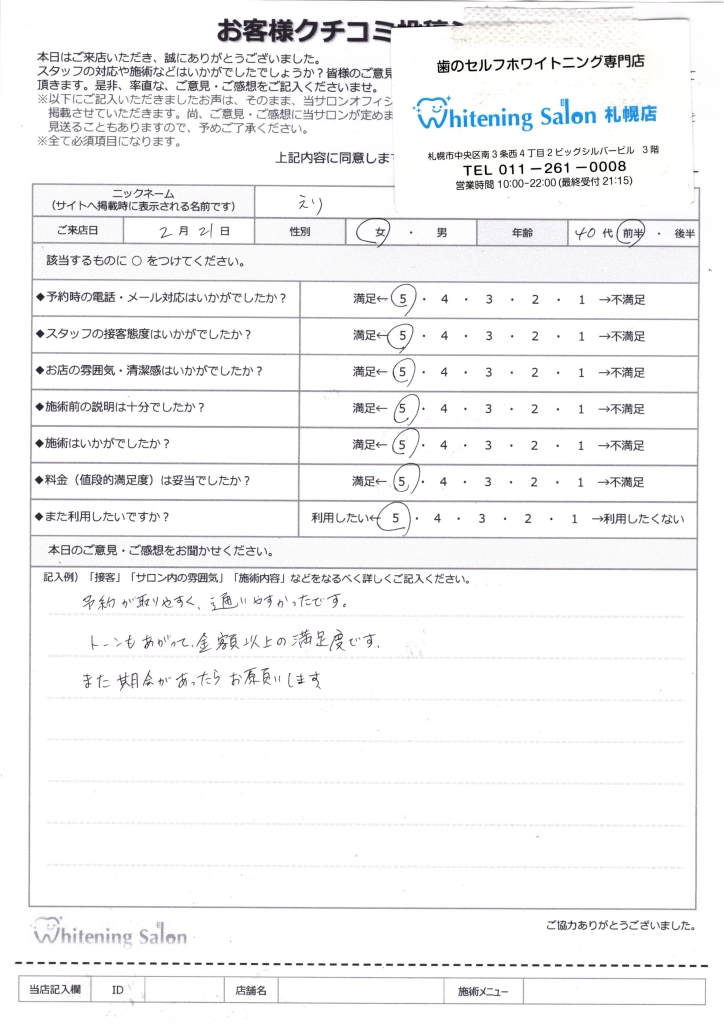 お客様クチコミ
本日はご来店いただき、誠にありがとうございました。
スタッフの対応や施術などはいかがでしたでしょうか？皆様のご意見
頂きます。是非、率直な、ご意見・ご感想をご記入くださいませ。
※以下にご記入いただきましたお声は、そのまま、当サロンオフィシ
掲載させていただきます。尚、ご意見・ご感想に当サロンが定めま
見送ることもありますので、予めご了承ください。
※全て必須項目になります。
上記内容に同意します
歯のセルフホワイトニング専門店
Whitening Salon 札幌店
札幌市中央区南3条西4丁目2ビッグシルバービル 3階
TEL 011-261-0008
営業時間 10:00-22:00 (最終受付 21:15)
ニックネーム
(サイトへ掲載時に表示される名前です)
えり
ご来店日 2月21日 性別 女 ・ 男 年齢 40代 前半 ・ 後半
該当するものに ○ をつけてください。
◆予約時の電話・メール対応はいかがでしたか？ 満足← 5 ・ 4 ・ 3 ・ 2 ・ 1 →不満足
◆スタッフの接客態度はいかがでしたか？ 満足← 5 ・ 4 ・ 3 ・ 2 ・ 1 →不満足
◆お店の雰囲気・清潔感はいかがでしたか？ 満足← 5 ・ 4 ・ 3 ・ 2 ・ 1 →不満足
◆施術前の説明は十分でしたか？ 満足← 5 ・ 4 ・ 3 ・ 2 ・ 1 →不満足
◆施術はいかがでしたか？ 満足← 5 ・ 4 ・ 3 ・ 2 ・ 1 →不満足
◆料金（値段的満足度）は妥当でしたか？ 満足← 5 ・ 4 ・ 3 ・ 2 ・ 1 →不満足
◆また利用したいですか？ 利用したい← 5 ・ 4 ・ 3 ・ 2 ・ 1 →利用したくない
本日のご意見・ご感想をお聞かせください。
記入例）「接客」「サロン内の雰囲気」「施術内容」などをなるべく詳しくご記入ください。
予約が取りやすく、通いやすかったです。
トーンもあがって、金額以上の満足度です。
また期会があったらお願いします
Whitening Salon
ご協力ありがとうございました。
当店記入欄 ID 店舗名 施術メニュー